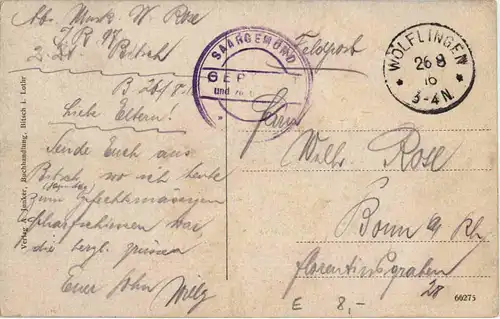 Abs. Musk. W. Rose
I. R. 97
Bitsch
B. 26/8.16
Liebe Eltern!
Sende Euch aus
Bitsch, wo ich heute
zum
scharfschiessen war
die herzl. Grüsse
Euer Sohn Willy
Verlag A. Jenker, Buchhandlung, Bitsch i. Lothr
SAARGEMÜND
GEPRÜFT
und zu
Feldpost
WÖLFLINGEN
26 8
16
* 3-4N. *
Herrn
Wilh. Rose
Bonn a/Rh
Florentiusgraben
28
E 8,-
60275